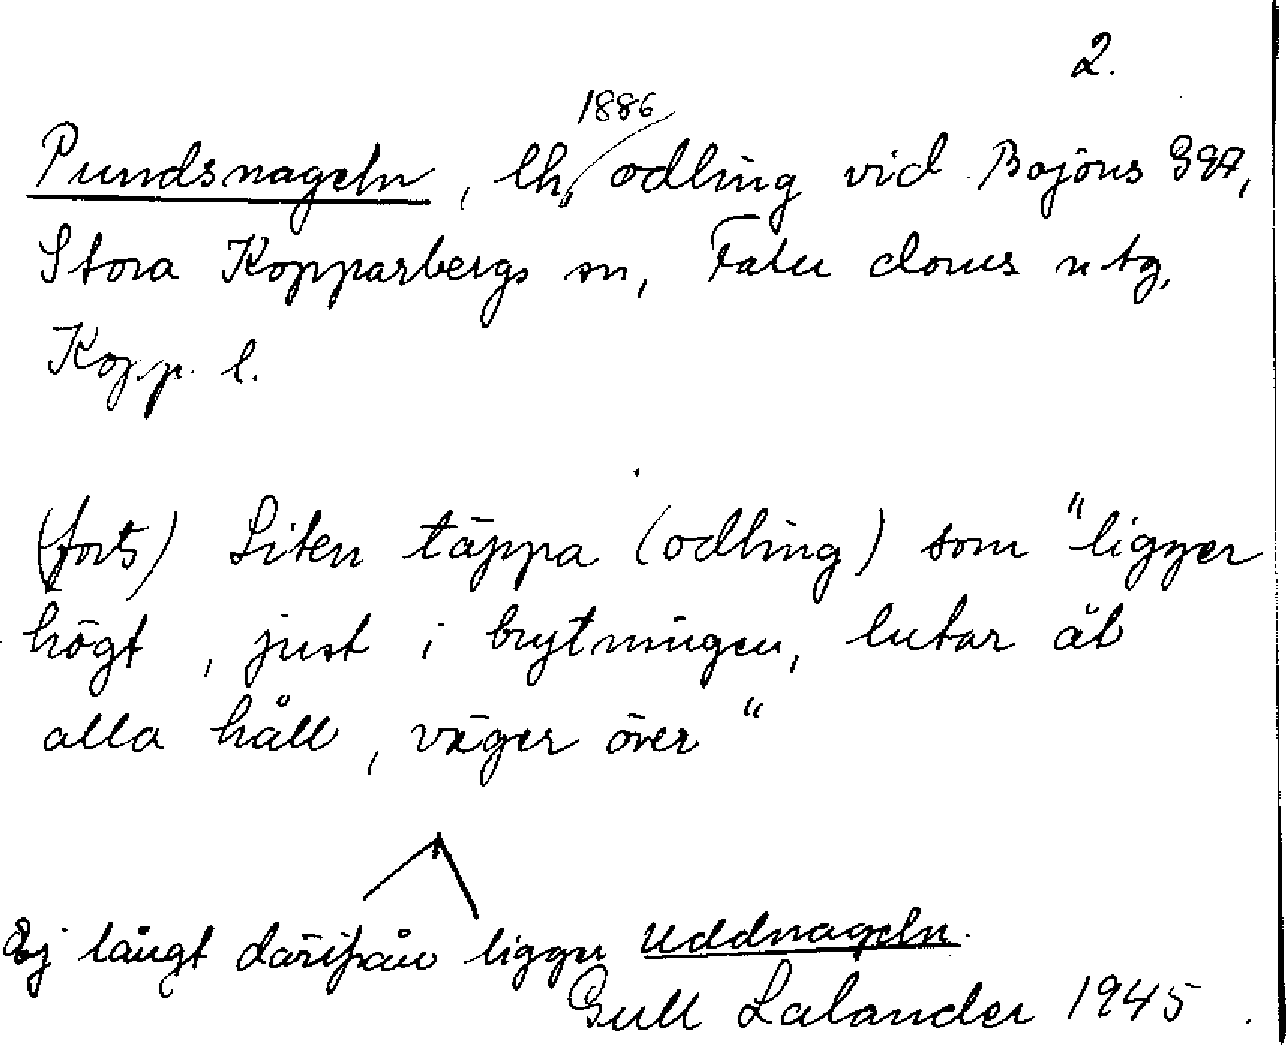 2.
1886
Pundsnageln, lh, odling vid Bojöns
Stora Kopparbergs sn, Falu doms utg,
Kopp. l.
(forts) Liten täppa (odling) som "ligger
högt, just i brytningen, lutar åt
alla håll, väger över"
Ej långt därifrån ligger Uddnageln.
Gull Lalander 1945